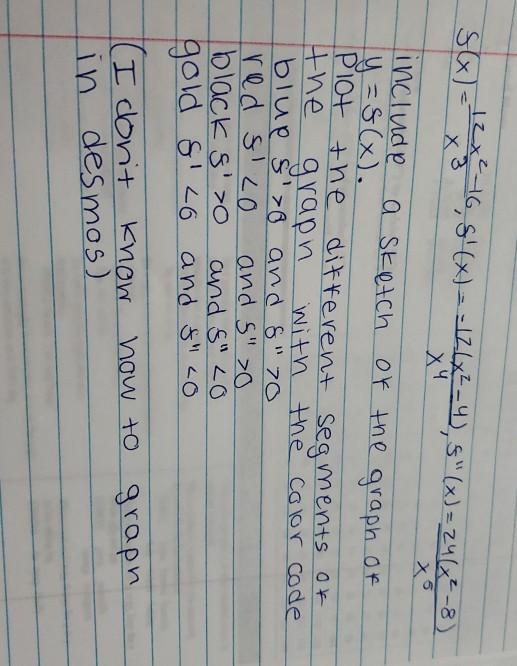 f(x) = 12x²-16/x³, f'(x) = -12(x²-4)/x⁴, f''(x) = 24(x²-8)/x⁵
include a sketch of the graph of
y = f(x).
Plot the different segments of
the graph with the color code
blue f'>0 and f''>0
red f'<0 and f''>0
black f'>0 and f''<0
gold f'<0 and f''<0
(I don't know how to graph
in desmos)